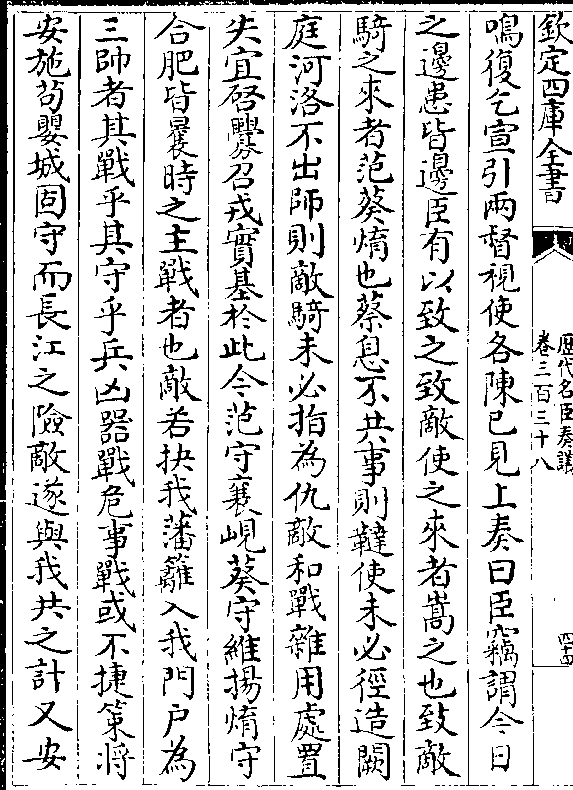 欽定四庫全書
歷代名臣奏議
卷三百三十八
四十四
鳴復乞宣引兩督視使各陳已見上奏曰臣竊謂今日
之邊患皆邊臣有以致之致敵使之來者嵩之也致敵
騎之來者范葵熵也蔡息不共事則韃使未必徑造闕
庭河洛不出師則敵騎未必指為仇敵和戰雜用處置
失宜啓釁召戎實基於此今范守襄峴葵守維揚熵守
合肥皆曩時之主戰者也敵若抉我藩籬入我門戶為
三帥者其戰乎其守乎兵凶器戰危事戰或不捷策將
安施苟嬰城固守而長江之險敵遂與我共之計又安